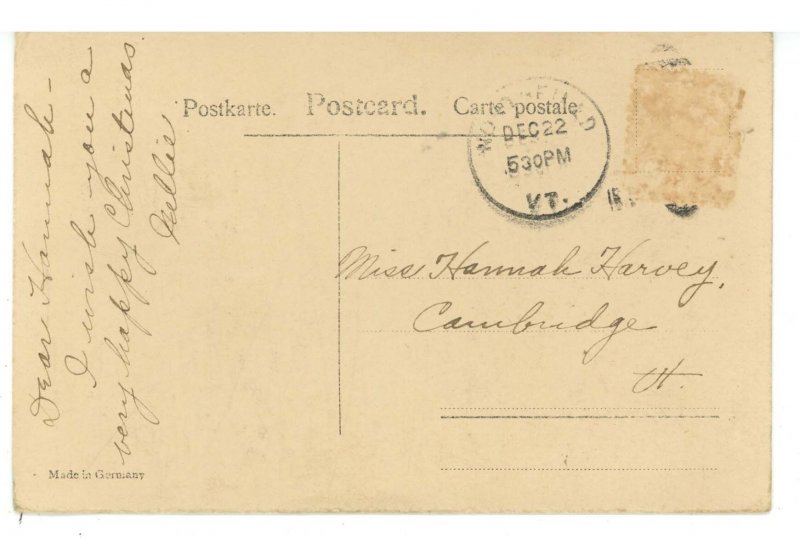 Postkarte. Postcard. Carte postale
DEC 22
530PM
VT.
Dear Hannah -
I wish you a
very happy Christmas
Nellie
Miss Hannah Harvey,
Cambridge
Vt.
Made in Germany